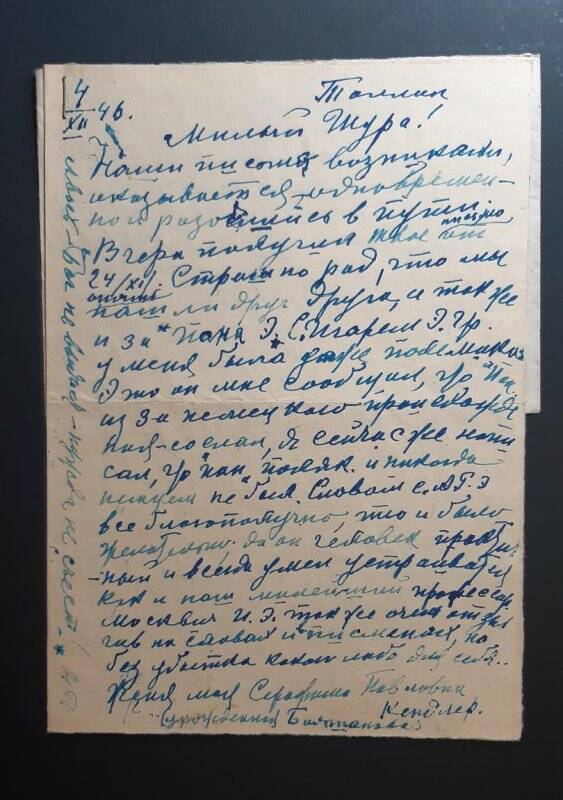 4/XII 46.
Таллин
Милый Шура!
Наши письма возникали,
оказывается одновремен-
но и разошлись в пути.
Вчера получил твое письмо от
24/XI. Страшно рад, что мы
опять нашли друг друга, и также
и за "пана Э. С. Игорем Э. Гр.
у меня была даже полемика
Это он мне сообщил, что "пан
из за немецкого происхожде
ния - сослан, я сейчас же напи
сал, что "пан" поляк и никогда
немцем не был. Словом с
все благополучно, что и было
желательно, да он человек практич
ный и всегда умел устраиваться
как и наш милейший профессор
Москвич И. Э. также очень отзыв
чив на словах и письмах, но
без убытка какого либо для себя..
Женя моя Серафима Павловна
Кендлер.
(урожденная
не съест!